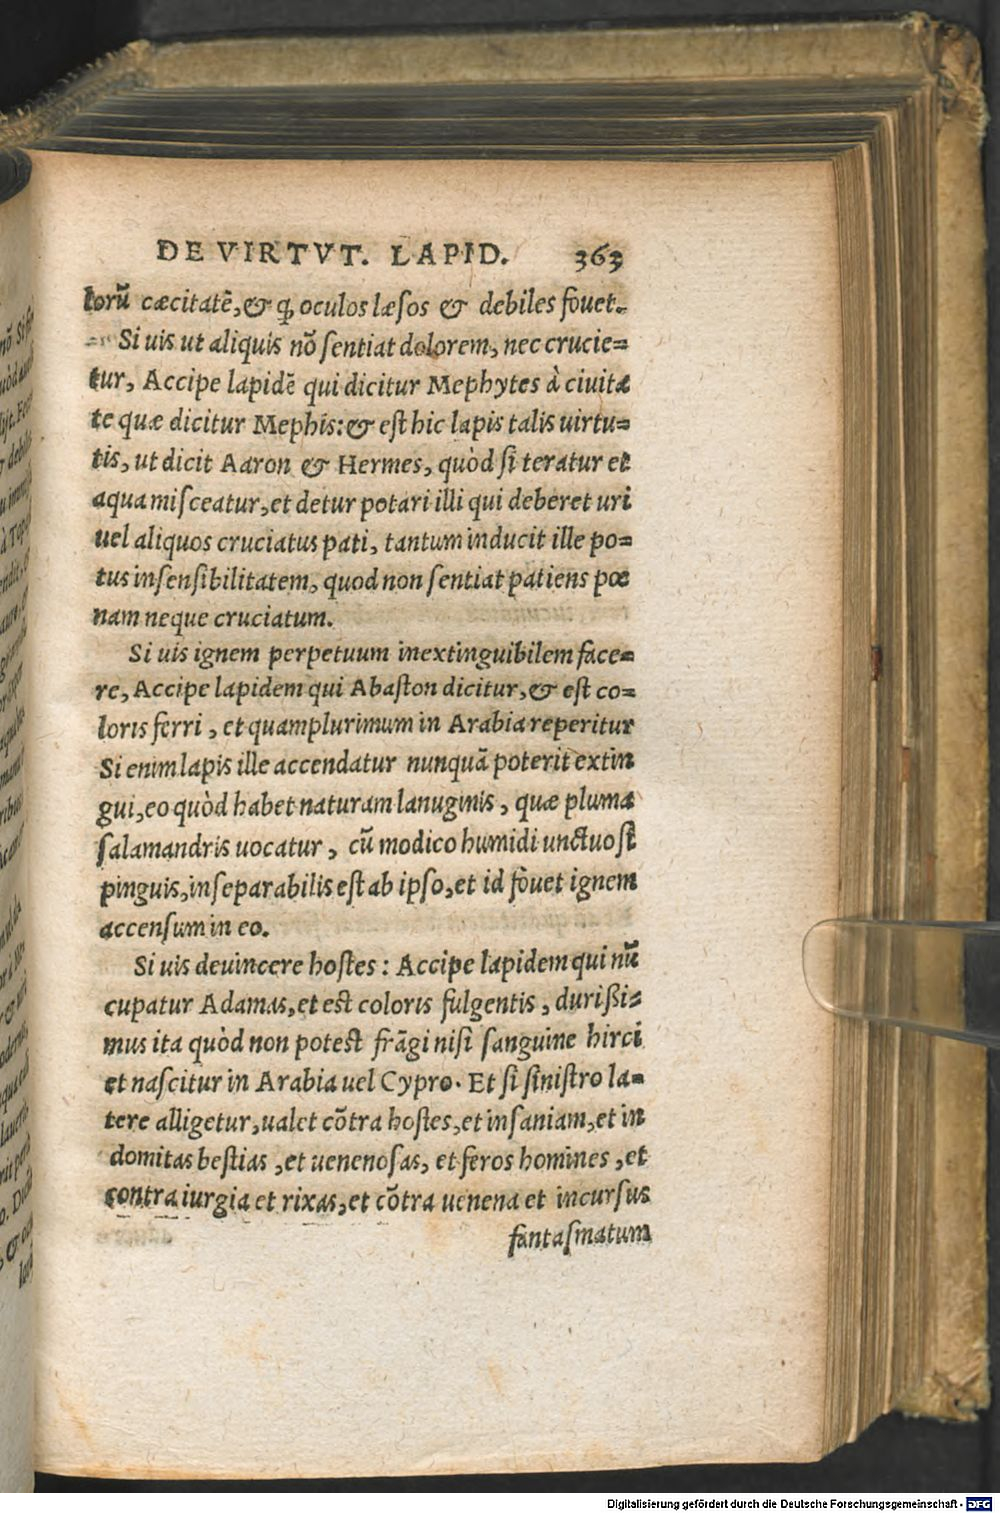 DE VIRTVT. LAPID. 363
lorũ cæcitatẽ, & q̃ oculos læsos & debiles fouet.
Si uis ut aliquis nõ sentiat dolorem, nec crucie=
tur, Accipe lapidẽ qui dicitur Mephytes à ciuita
te quæ dicitur Mephis: & est hic lapis talis uirtu=
tis, ut dicit Aaron & Hermes, quòd si teratur et
aqua misceatur, et detur potari illi qui deberet uri
uel aliquos cruciatus pati, tantum inducit ille po=
tus insensibilitatem, quod non sentiat patiens pœ
nam neque cruciatum.
Si uis ignem perpetuum inextinguibilem face=
re, Accipe lapidem qui Abaston dicitur, & est co=
loris ferri, et quamplurimum in Arabia reperitur
Si enim lapis ille accendatur nunquã poterit extin
gui, eo quòd habet naturam lanuginis, quæ pluma
salamandris uocatur, cũ modico humidi unctuosi
pinguis, inseparabilis est ab ipso, et id fouet ignem
accensum in eo.
Si uis deuincere hostes: Accipe lapidem qui nũ
cupatur Adamas, et est coloris fulgentis, durißi=
mus ita quòd non potest frãgi nisi sanguine hirci
et nascitur in Arabia uel Cypro. Et si sinistro la=
tere alligetur, ualet cõtra hostes, et insaniam, et in
domitas bestias, et uenenosas, et feros homines, et
contra iurgia et rixas, et cõtra uenena et incursus
fantasmatum
Digitalisierung gefördert durch die Deutsche Forschungsgemeinschaft - DFG